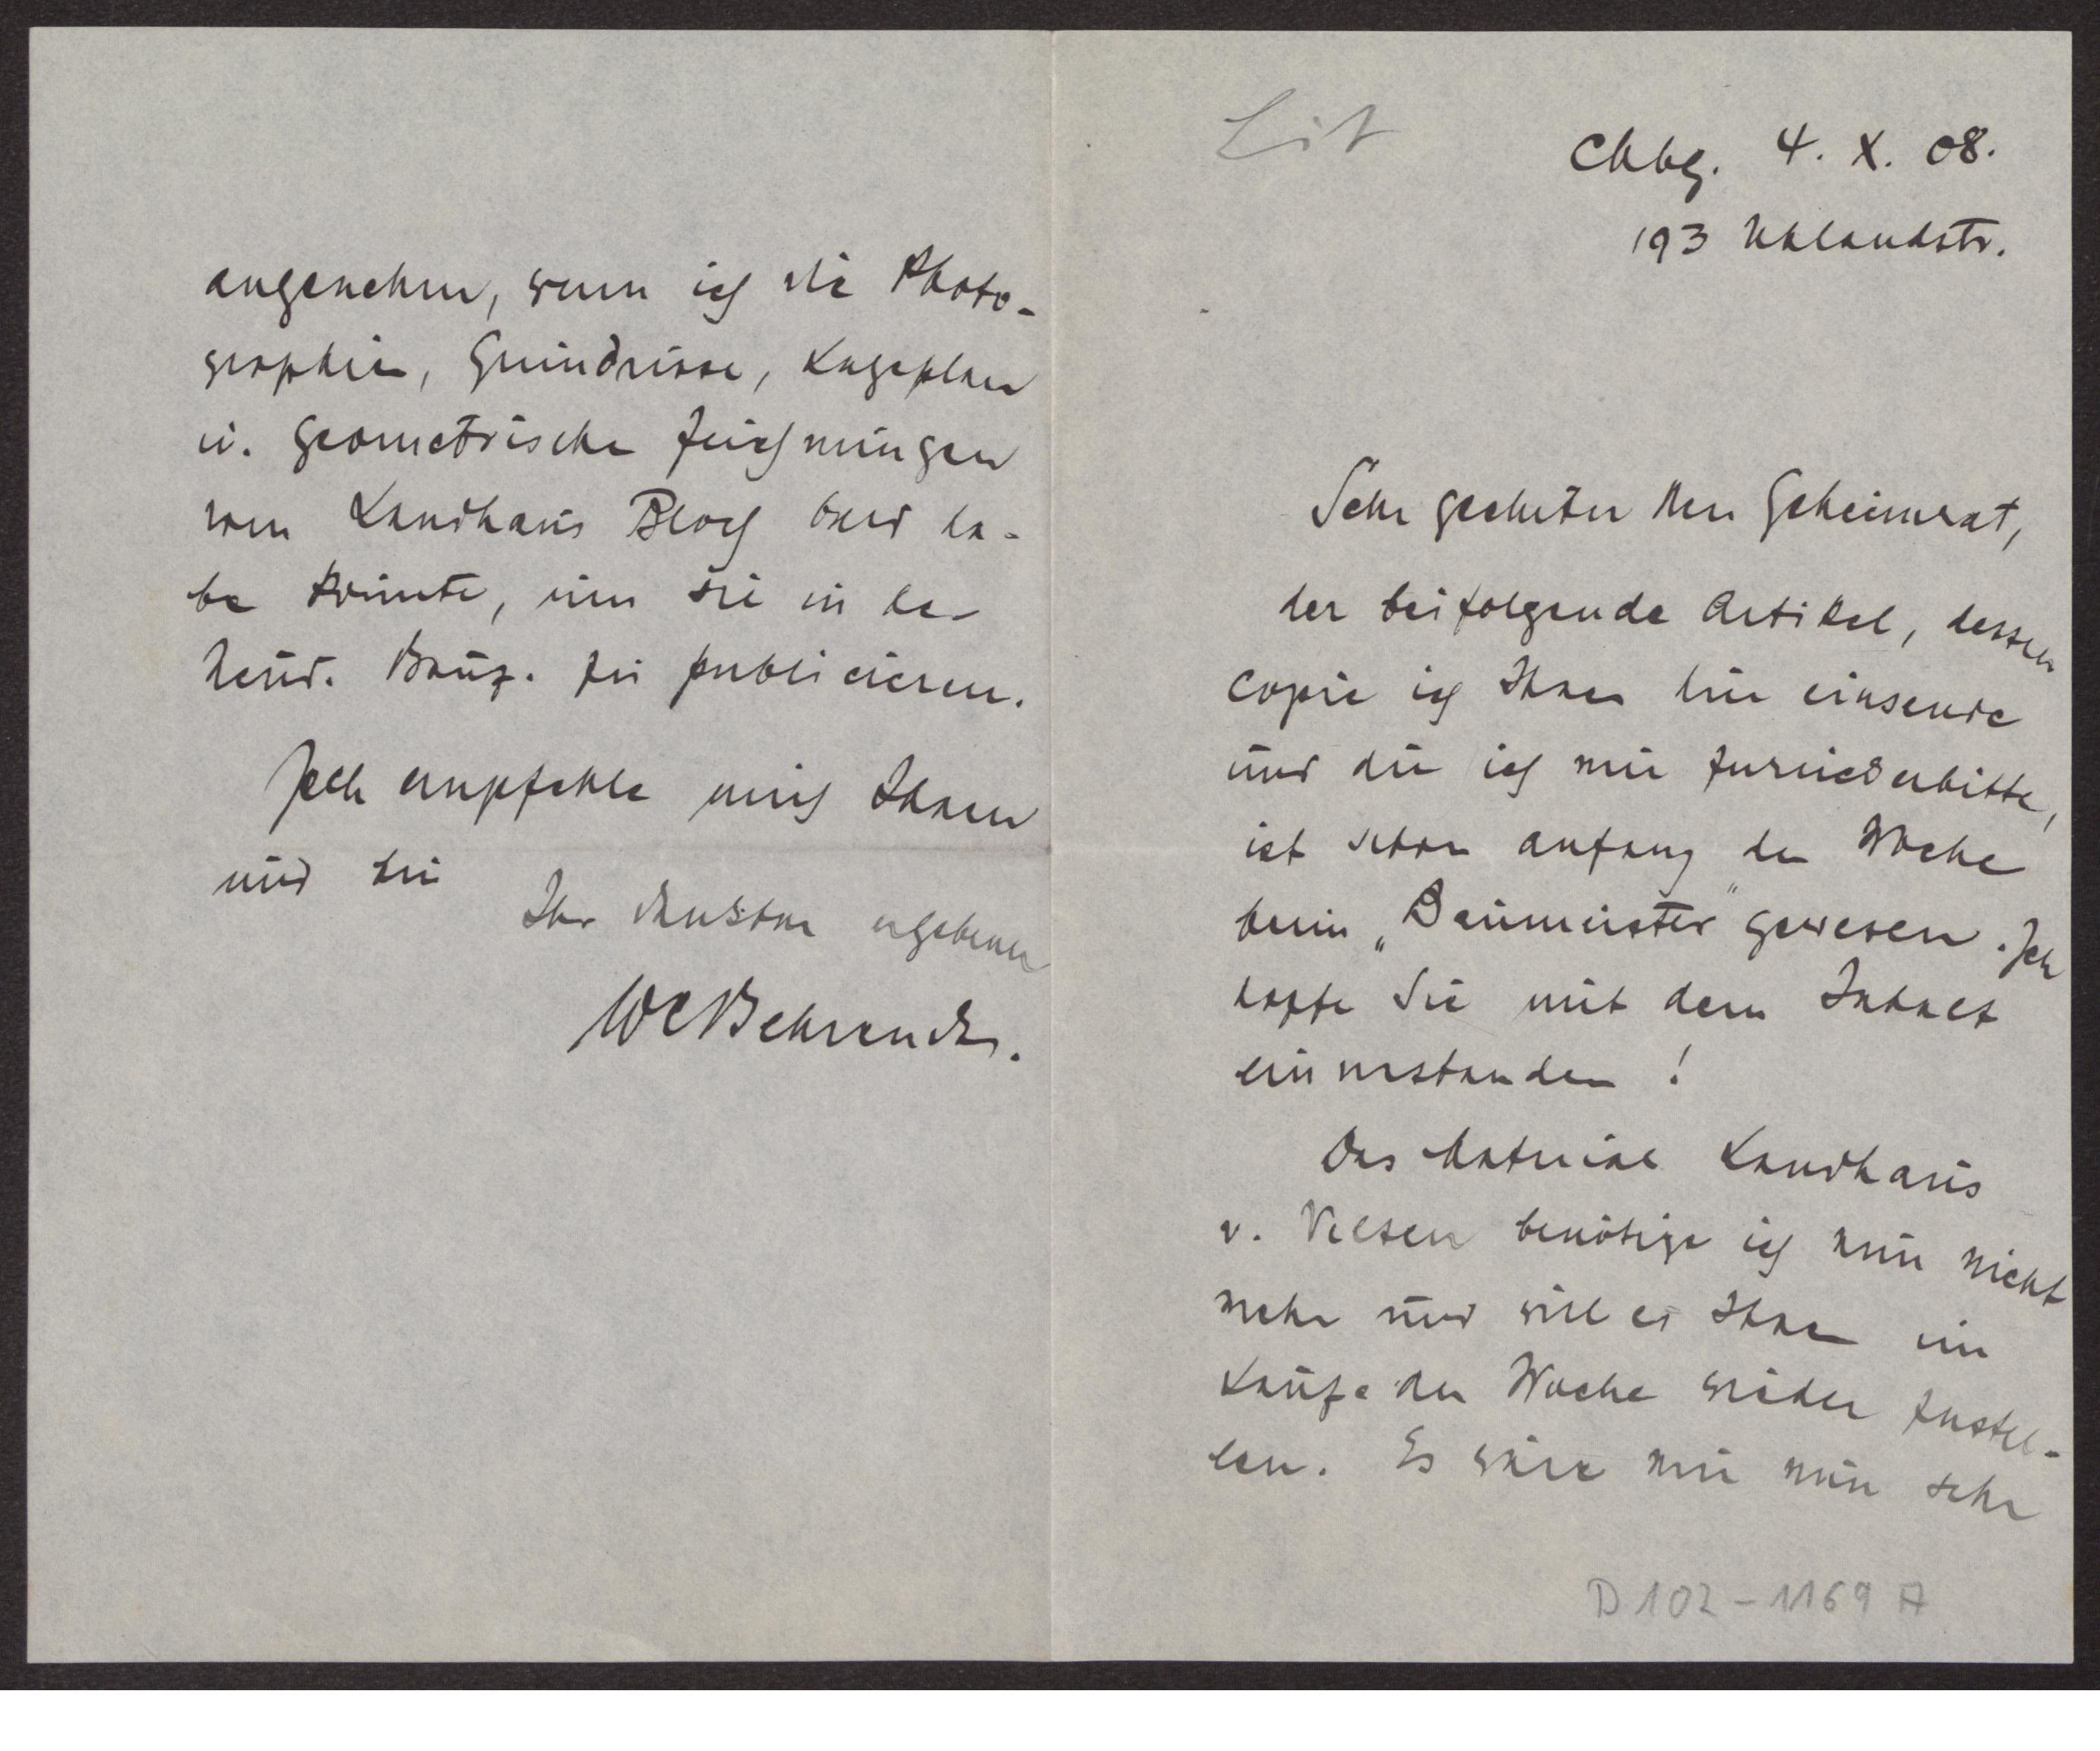 Lit
Chbg. 4. X. 08.
193 Uhlandstr.
Sehr geehrter Herr Geheimrat,
der beifolgende Artikel, dessen
Copie ich Ihnen hier einsende
und die ich mir zurückerbitte,
ist schon anfang der Woche
beim „Baumeister" gewesen. Ich
hoffe Sie mit dem Inhalt
einverstanden!
Das Material Landhaus
v. Velsen benötige ich nun nicht
mehr und will es Ihnen im
Laufe der Woche wieder zustel-
len. Es wäre mir nun sehr
D 102-1169 A
angenehm, wenn ich die Photo-
graphien, Grundrisse, Lageplan
u. geometrische Zeichnungen
vom Landhaus Bloch bald ha-
be könnte, um sie in der
Bauz. zu publicieren.
Ich empfehle mich Ihnen
und bin
Ihr dankbar ergebener
WCBehrendt.